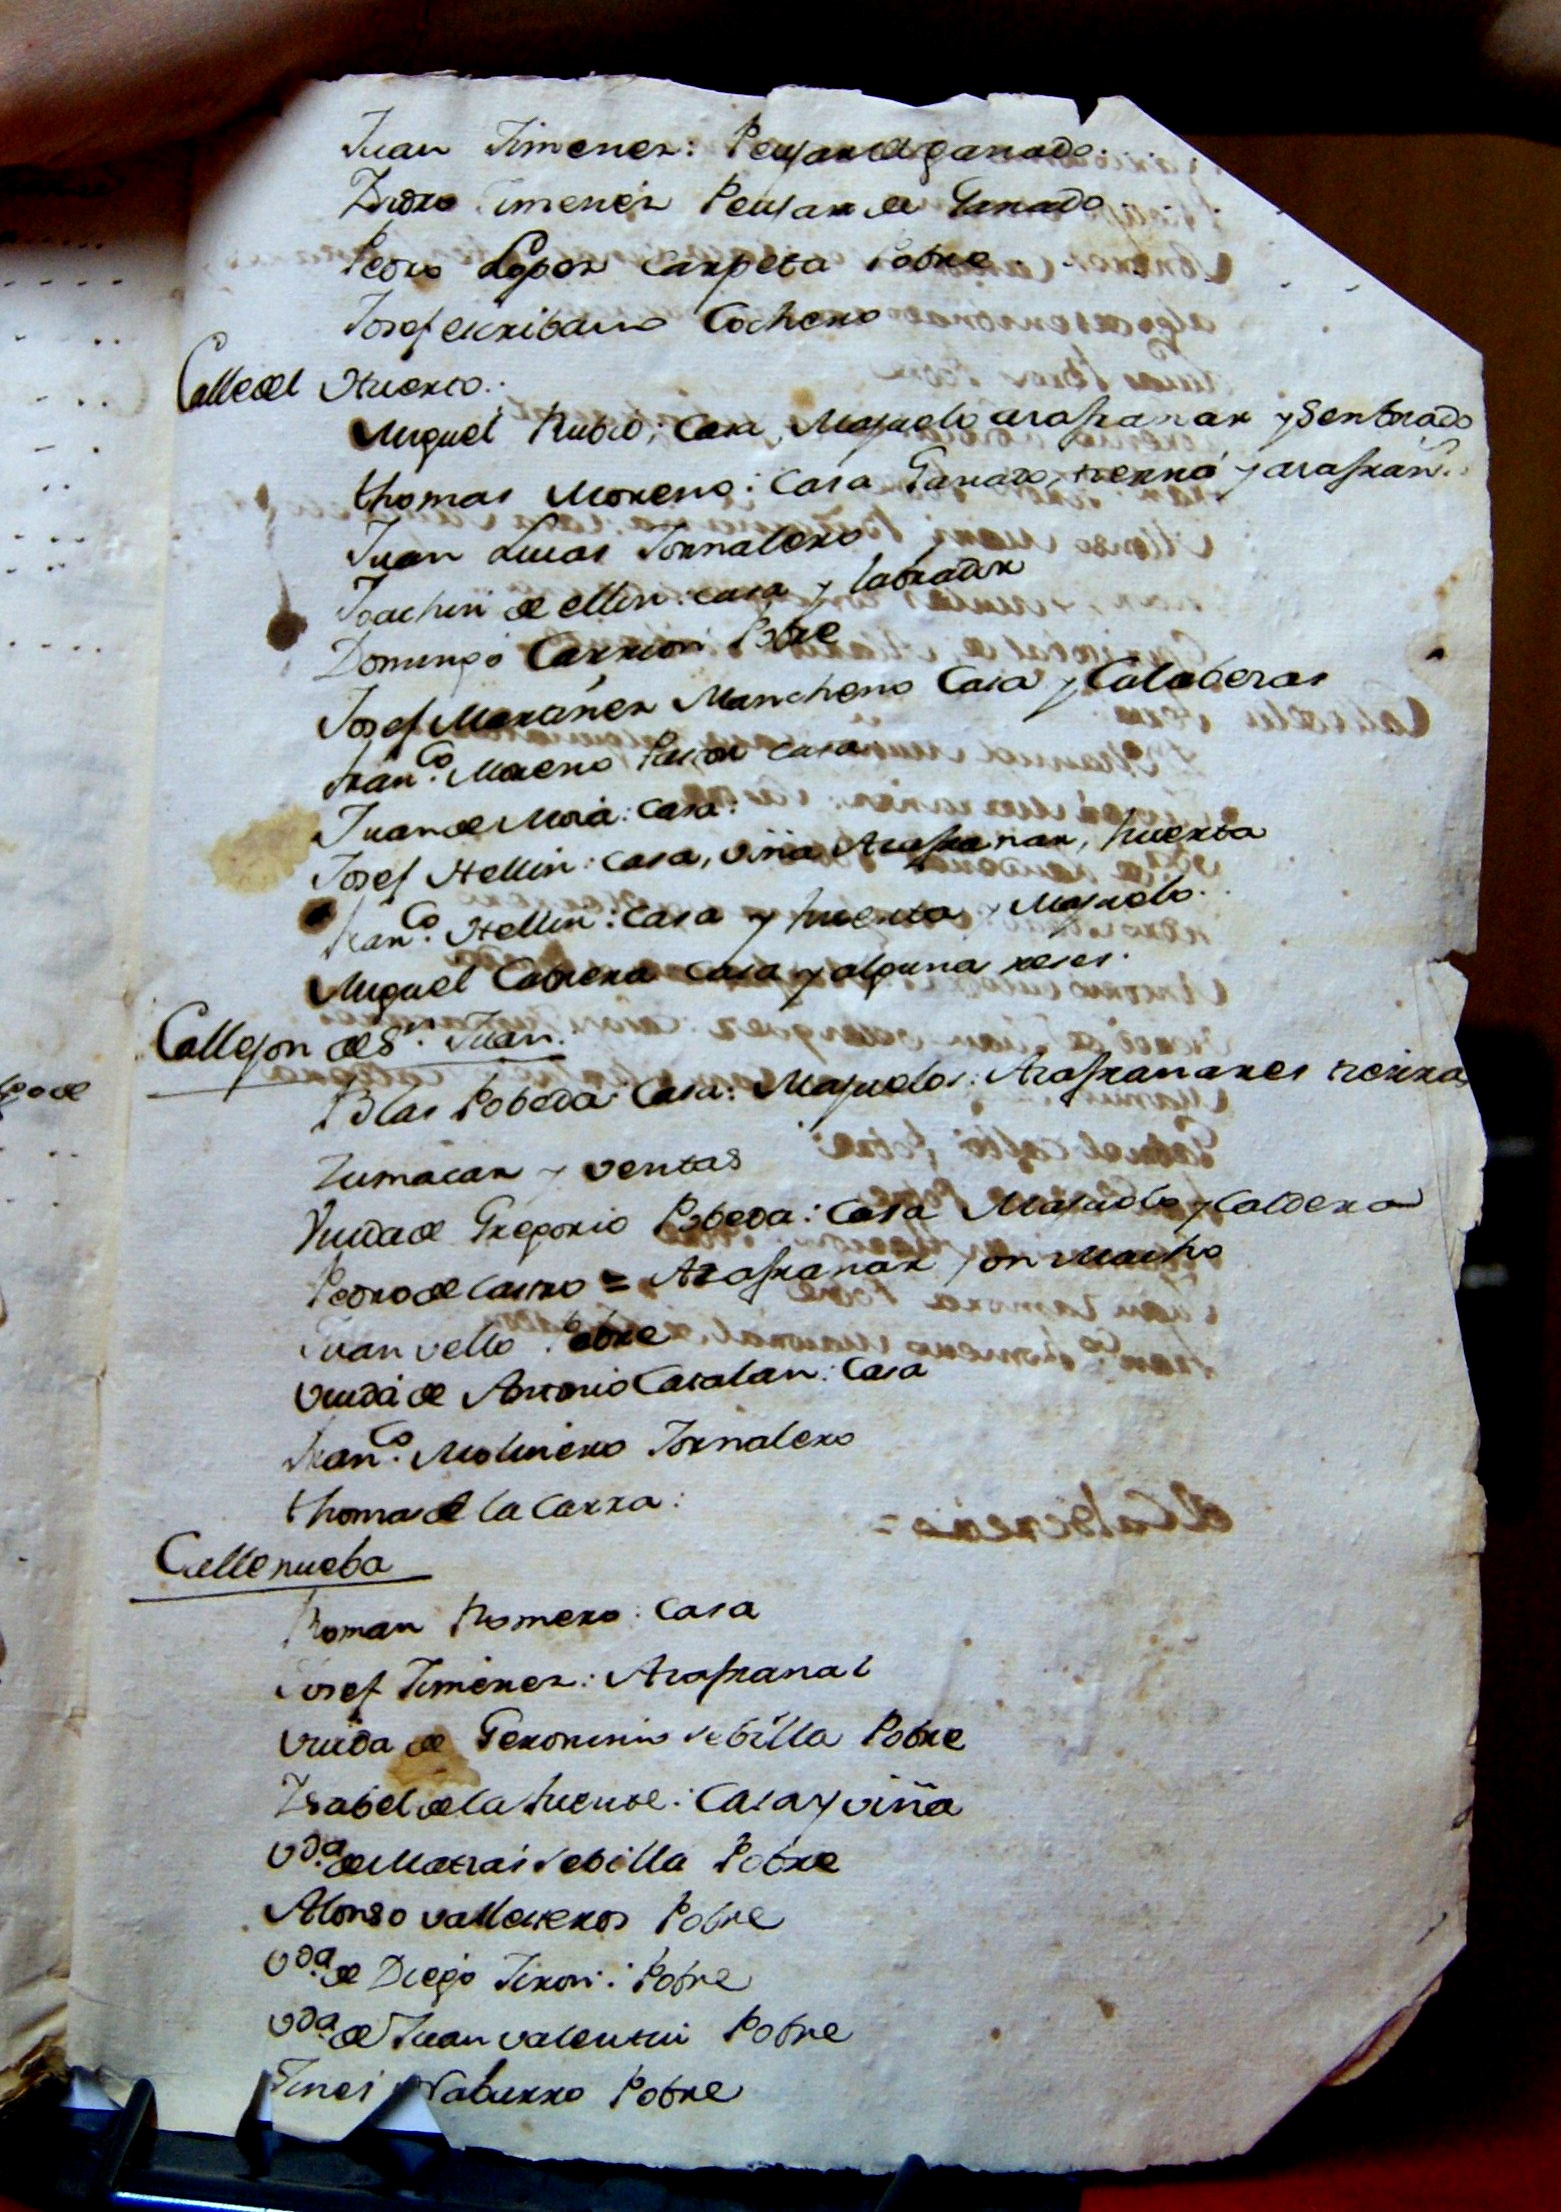 Juan Ximenez: Peujar de ganado.
Ximenez Peujar de Ganado
Pedro Lopez Carpeta Pobre
Josef escribano Cochero
Calle del Huerto.
Miguel Rubio; Casa, Majuelo azafranar y Senbrado
thomas Moreno: Casa Ganado, tierra y azafran.
Juan Lucas Jornalero
Joachin de ellin: casa y labrador
Domingo Carrion Pobre
Josef Martinez Mancheno Casa y Calaberas
fran.co Moreno casa
Juan de Mora: Casa:
Josef Hellin: casa, viña Azafranar, huerta
fran.co Hellin: Casa y huerta y Majuelo.
Miguel Cabrera Casa y alguna reses.
Callejon de Sn. Juan.
Blas Pobeda: Casa: Majuelos: Azafranares tierras
Zumacar y ventas
Viuda de Gregorio Pobeda: Casa Majuelo y Caldera
Pedro de Castro = Azafranar y on Macho
Juan vello Pobre
Viuda de Antonio Catalan: Casa
fran.co Molinero Jornalero
thomas de la Carra:
Calle nueba
Roman Romero: Casa
Josef Ximenez: Azafranal
Viuda de Geronimo sebilla Pobre
Isabel de la fuente: Casa y viña
Vda. de Matias sebilla Pobre
Alonso vallesteros Pobre
Vda. de Diego Jiron: Pobre
Vda. de Juan valentin Pobre
Jines Naburro Pobre